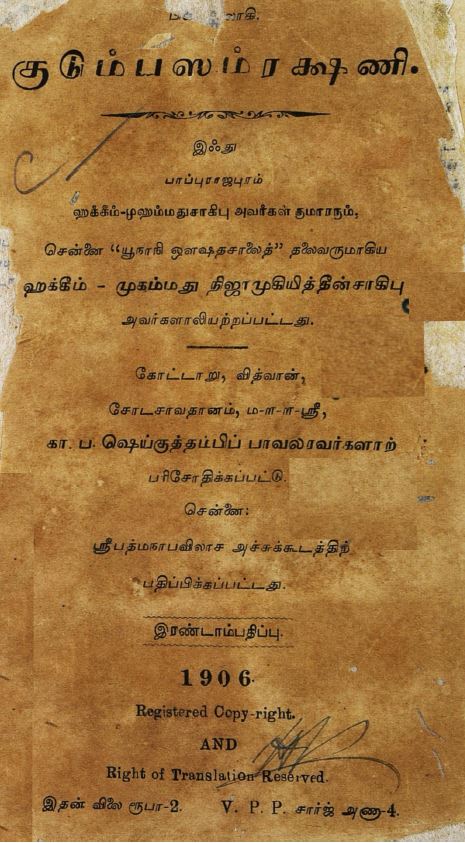 குடும்பஸம்ரக்ஷணி.
இஃது
பாப்புராஜபுரம்
ஹக்கீம்-முஹம்மதுசாகிபு அவர்கள் குமாரரும்,
சென்னை “யூநாநி ஔஷதசாலைத்” தலைவருமாகிய
ஹக்கீம் - முகம்மது நிஜாமுகியித்தீன்சாகிபு
அவர்களாலியற்றப்பட்டது.
கோட்டாறு, வித்வான்,
சோடசாவதானம், ம-ள-ள-ஸ்ரீ,
கா. ப. ஷெய்குத்தம்பிப் பாவலரவர்களாற்
பரிசோதிக்கப்பட்டு.
சென்னை:
ஸ்ரீபத்மநாபவிலாச அச்சுக்கூடத்திற்
பதிப்பிக்கப்பட்டது.
இரண்டாம்பதிப்பு.
1906
Registered Copy-right.
AND
Right of Translation Reserved.
இதன் விலை ரூபா-2. V. P. P. சார்ஜ் அணா-4.